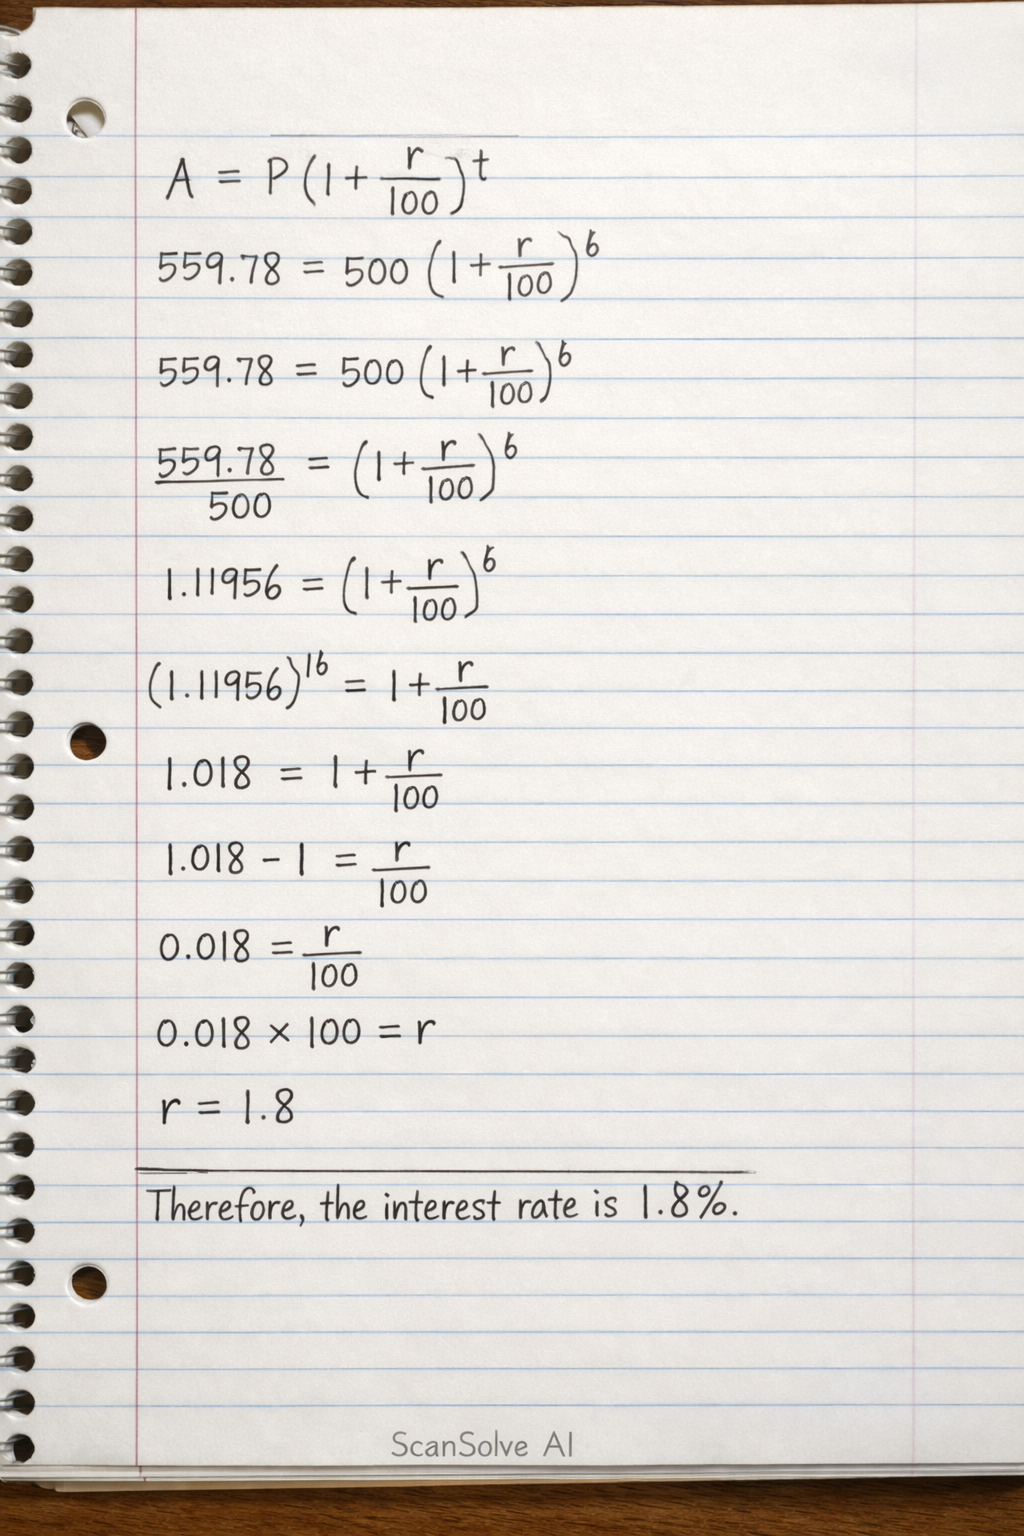 A = P(1 + r/100)^t
559.78 = 500 (1 + r/100)^6
559.78 = 500 (1 + r/100)^6
559.78/500 = (1 + r/100)^6
1.11956 = (1 + r/100)^6
(1.11956)^16 = 1 + r/100
1.018 = 1 + r/100
1.018 - 1 = r/100
0.018 = r/100
0.018 × 100 = r
r = 1.8
Therefore, the interest rate is 1.8%.
ScanSolve AI